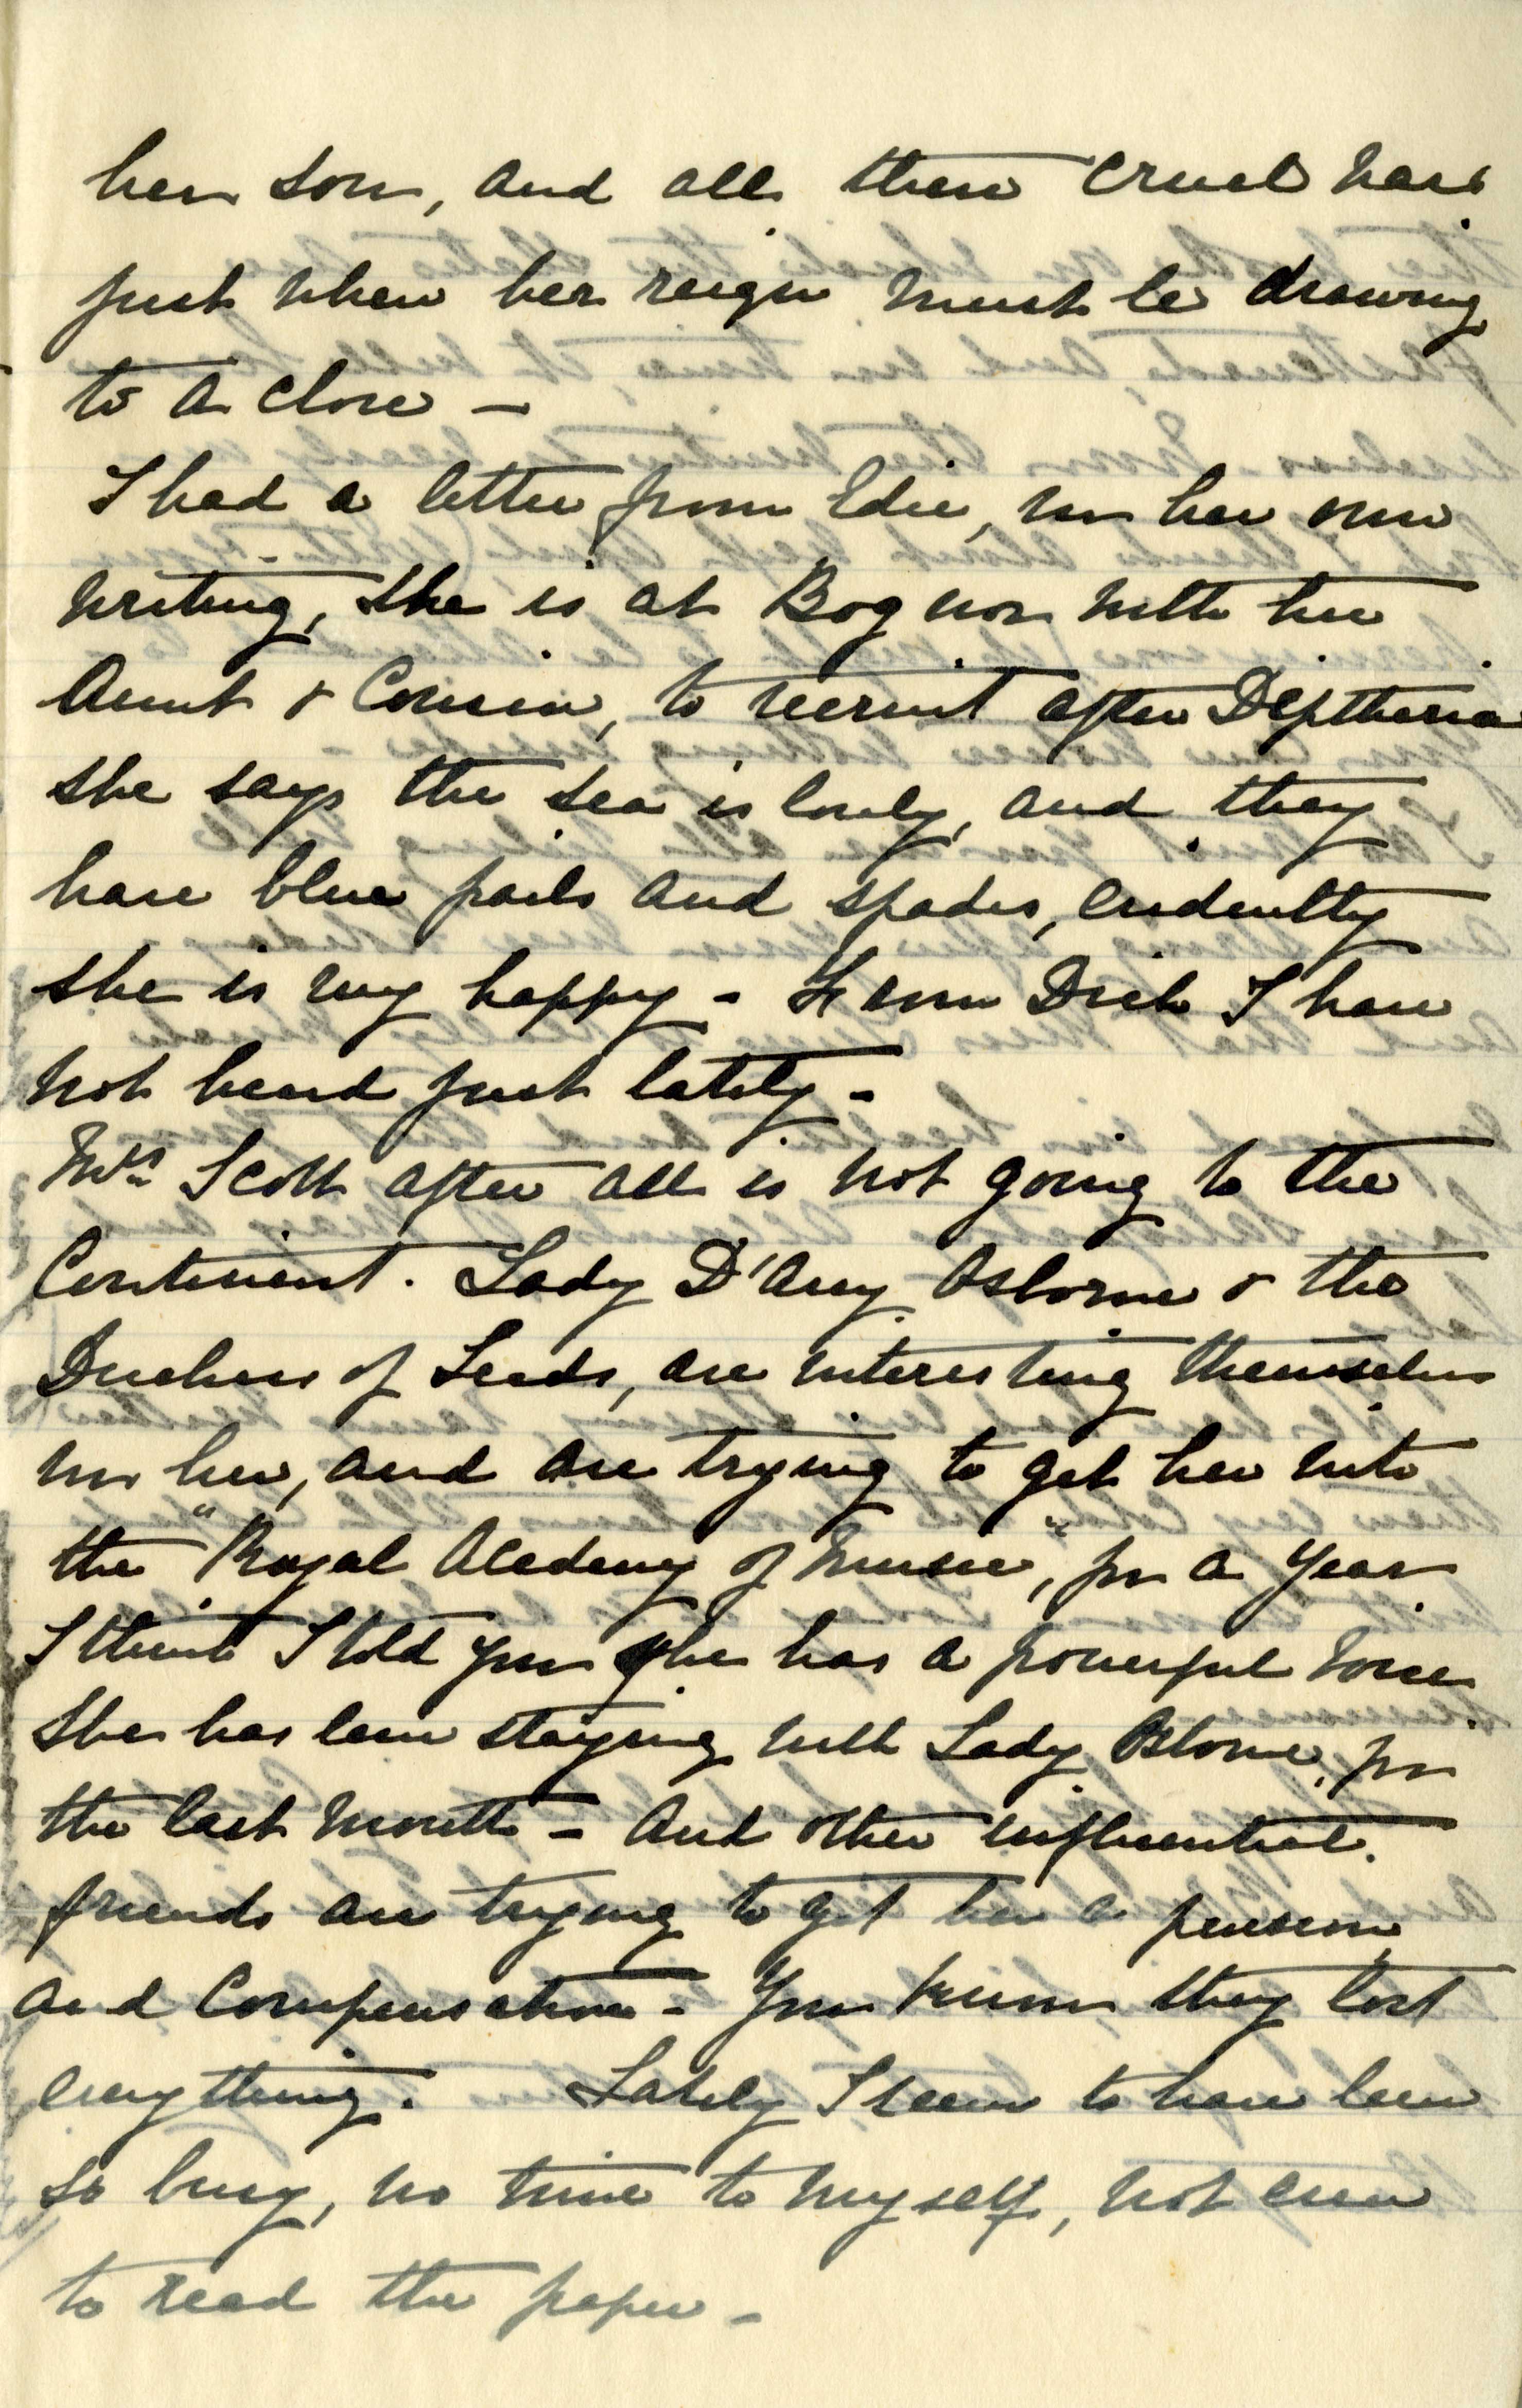 her son, and all these cruel wars
just when her reign must be drawing
to a close —
I had a letter from Edie, in her own
writing, She is at Bognor with her
Aunt & Cousin, to recruit after Diptheria
she says the sea is lovely, and they
have blue pails and spades, evidently
she is very happy - From Dick I have
not heard just lately -
Mrs Scott after all is not going to the
Continent. Lady D'Arcy Osborne & the
Duchess of Leeds, are interesting themselves
in her, and are trying to get her into
the "Royal Acedemy of Music", for a Year
I think I told you she has a powerful voice
She has been staying with Lady Osborne, for
the last month - And other influential
friends are trying to get her a pension
and Compensation - You know they lost
everything. Lately I seem to have been
so busy, no time to myself, not even
to read the paper -